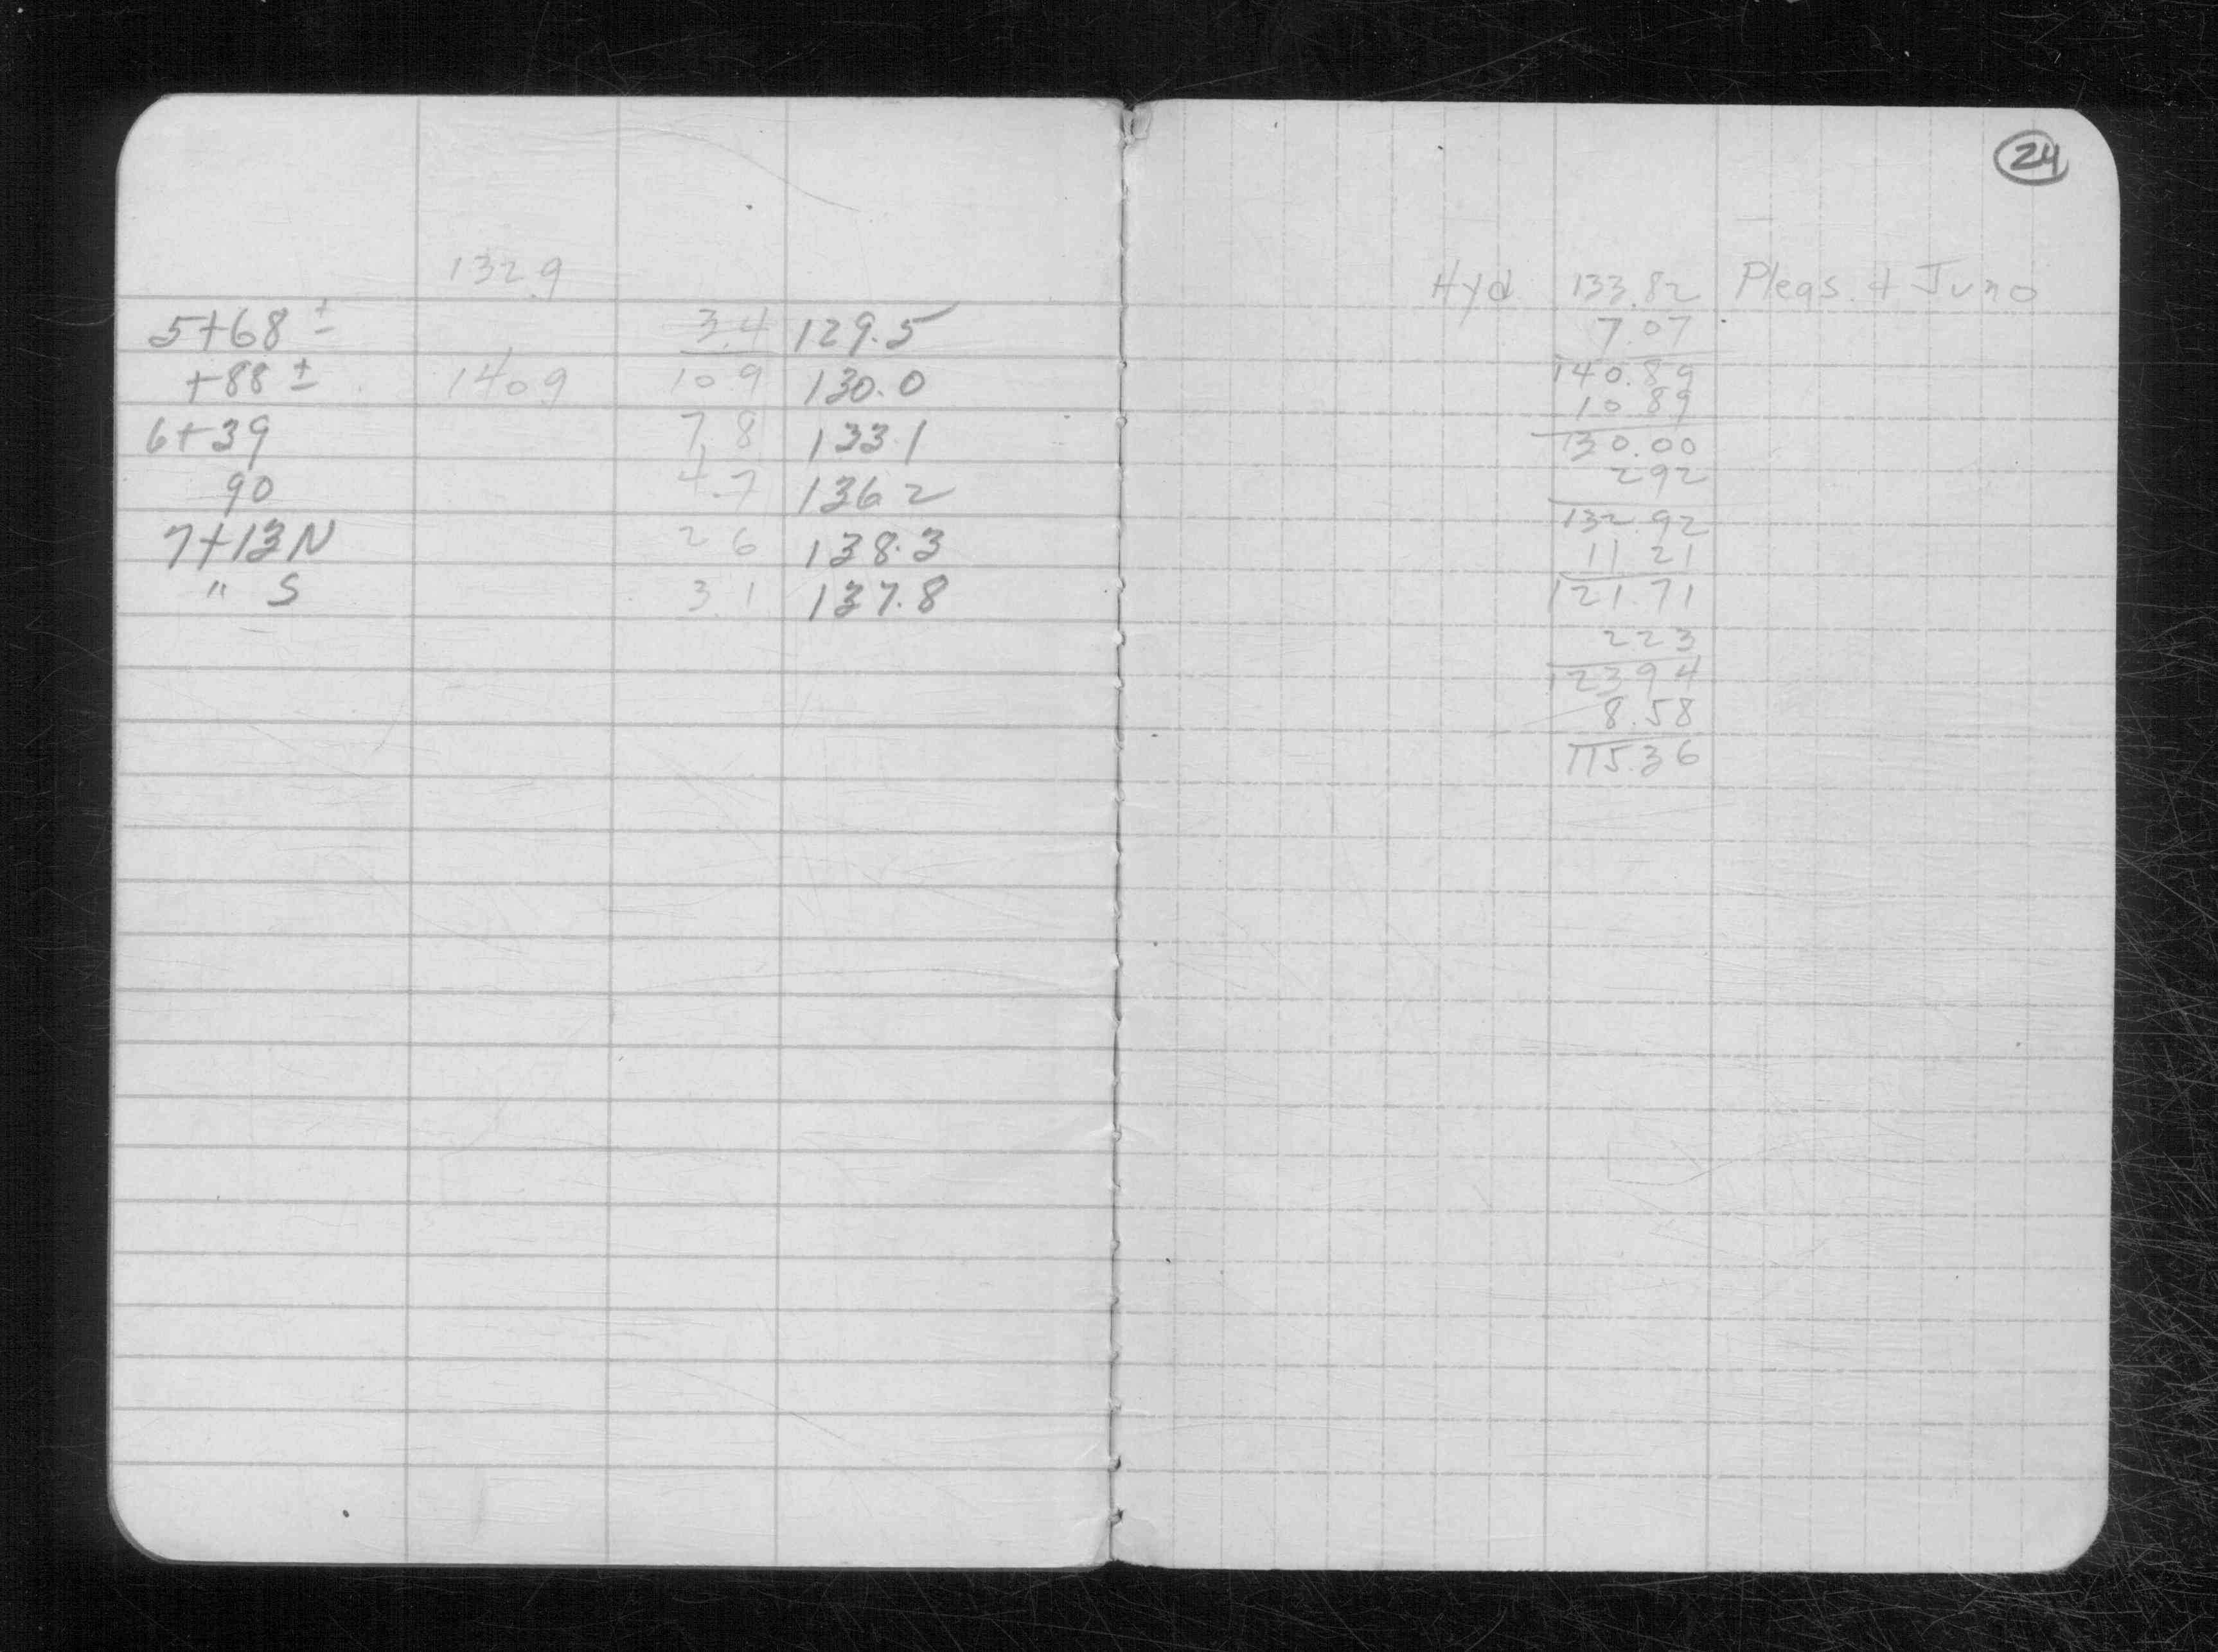 132.9
5+68 ± 3.4 129.5
+88 ± 140.9 10.9 130.0
6+39 7.8 133.1
90 4.7 136.2
7+13 N 2.6 138.3
" S 3.1 137.8
24
Hyd 133.82 Pleas. & Juno
7.07
140.89
10.89
130.00
2.92
132.92
11.21
121.71
2.23
123.94
8.58
115.36